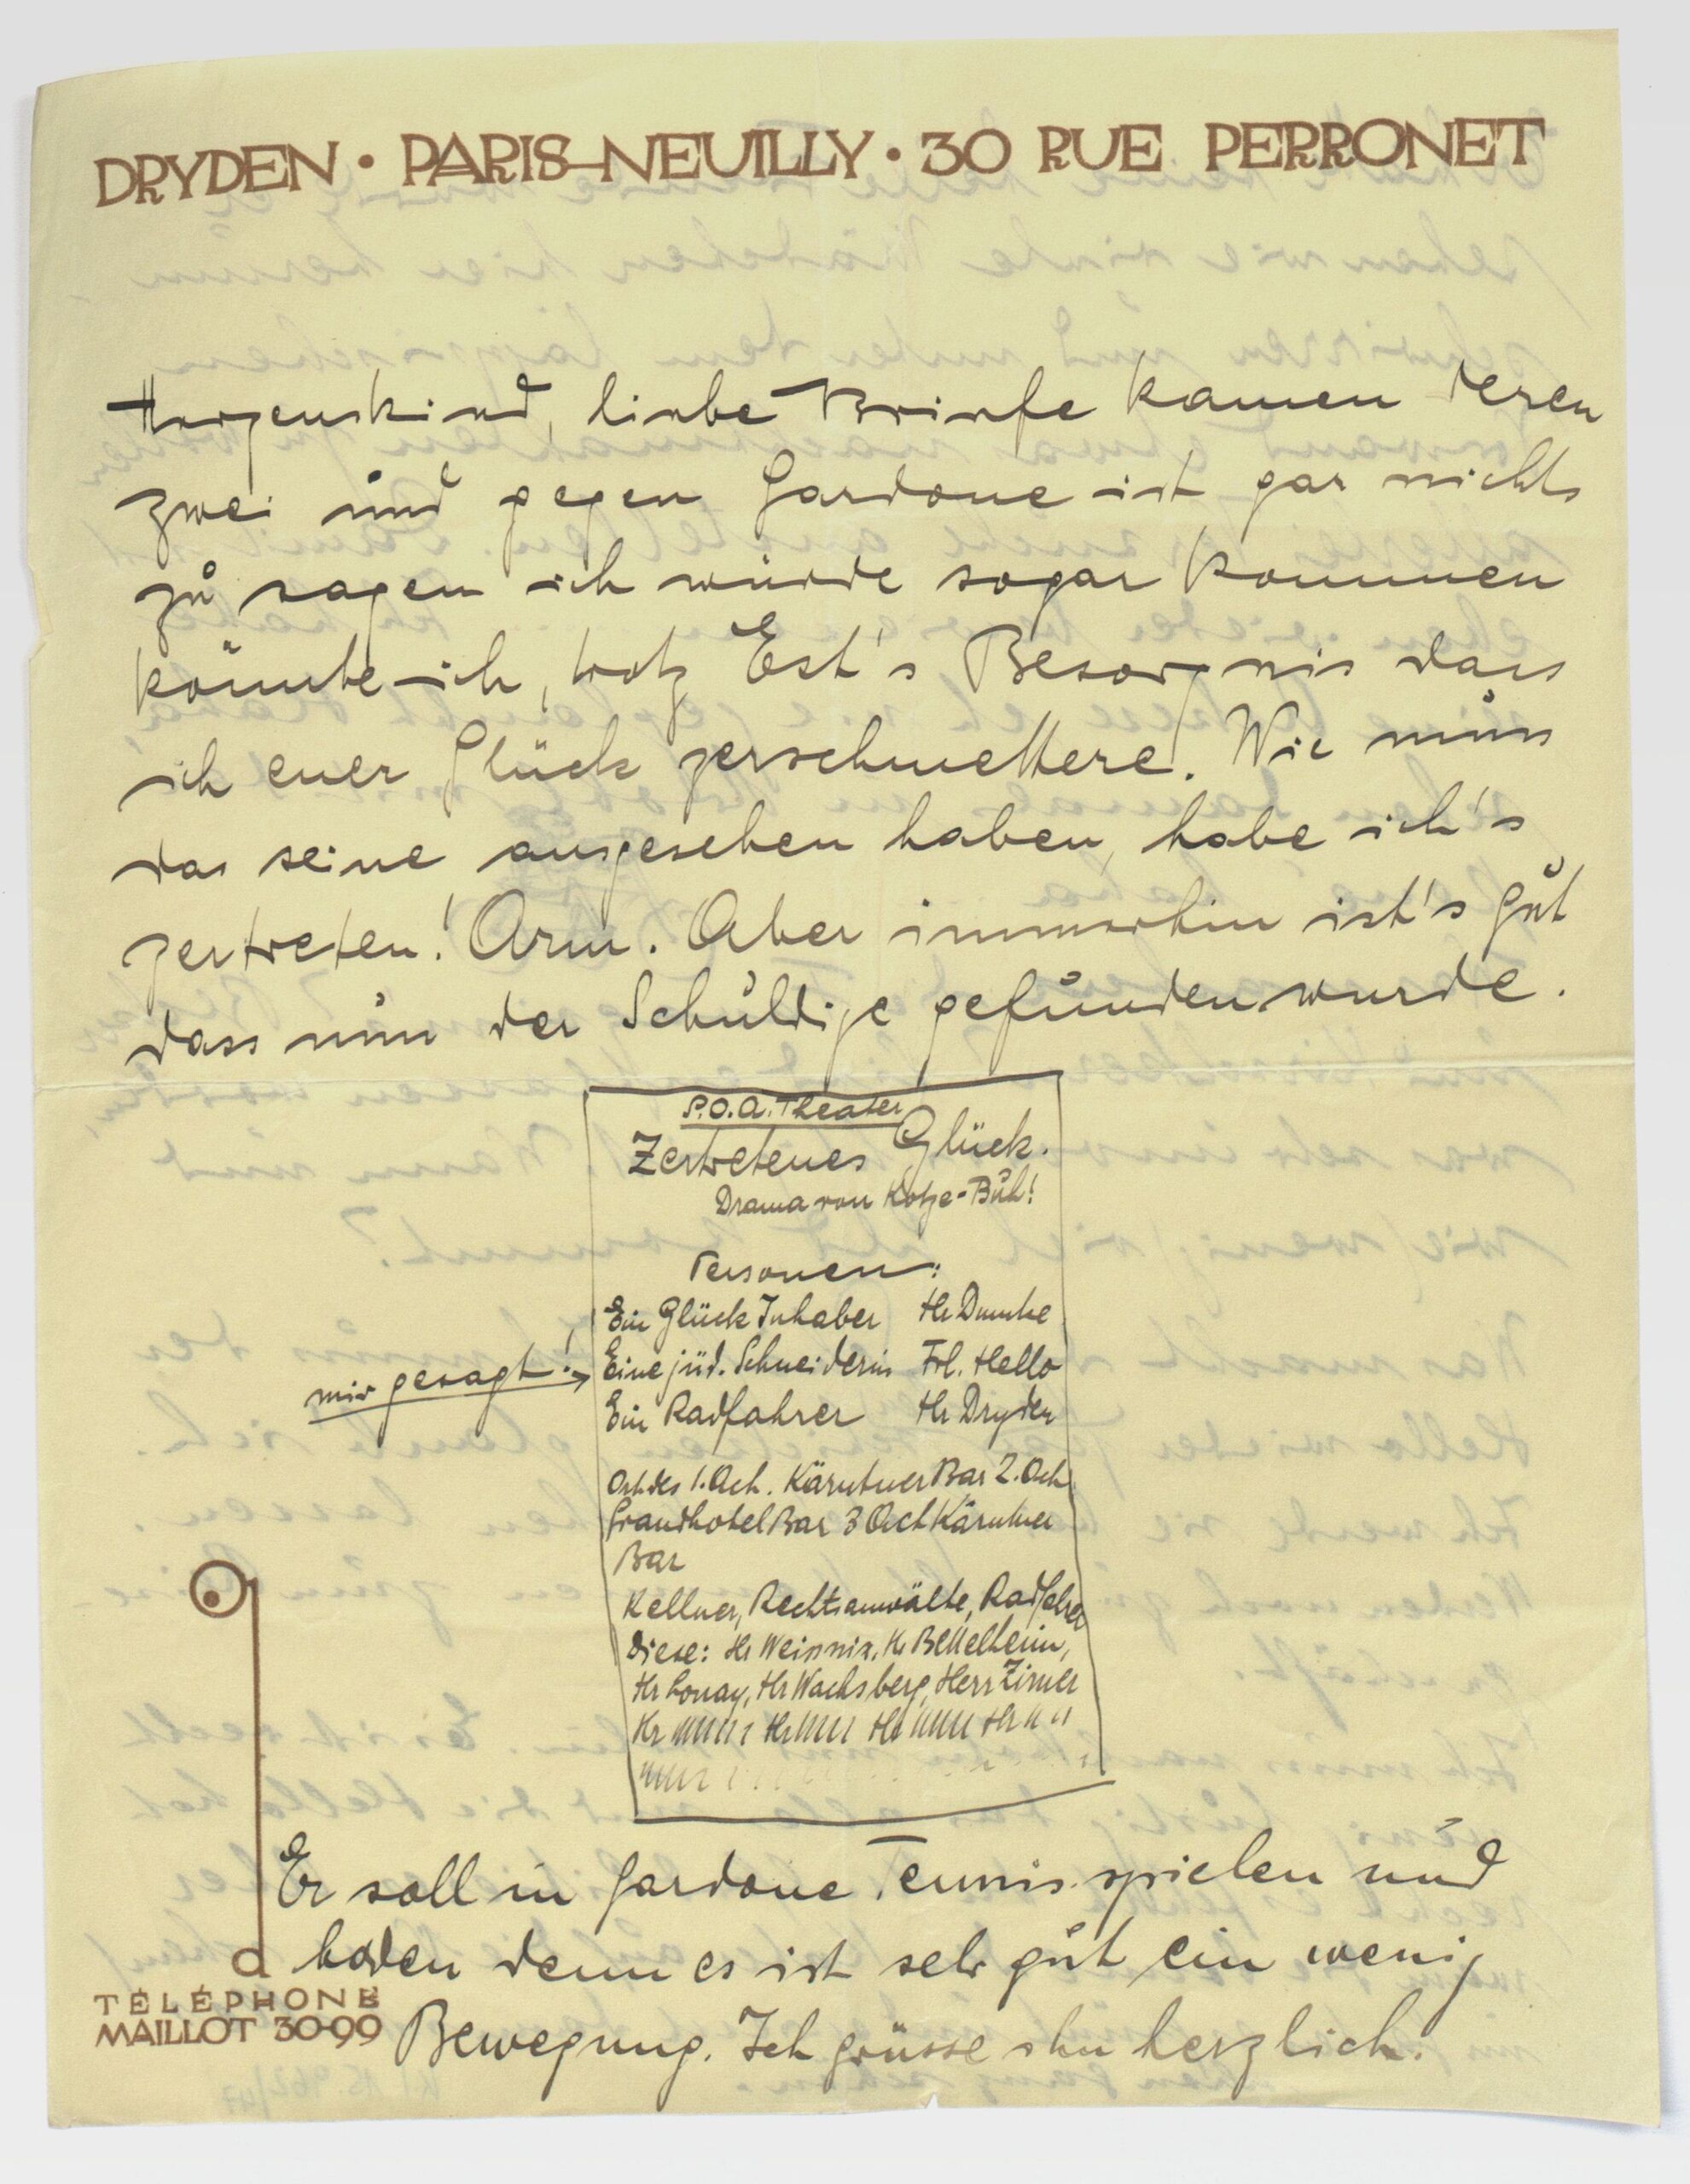 DRYDEN • PARIS-NEUILLY • 30 RUE PERRONET
Herzenskind, liebe Briefe kamen deren
zwei und gegen Gardone ist gar nichts
zu sagen ich würde sogar kommen
könnte ich, trotz Est's Besorgnis dass
ich euer Glück zerschmettere. Wie muss
das seine ausgesehen haben, habe ich's
zertreten! Arm. Aber immerhin ist's gut
dass nun der Schuldige gefunden wurde.
P.O.A. Theater
Zertretenes Glück.
Drama von Kotze-Buh!
Personen:
Ein Glück Inhaber Hr
Eine jüd. Schneiderin Frl. Hello
mir gesagt!! →
Ein Radfahrer Hr Dryden
Ort des 1. Act. Kärntner Bar 2. Act
Grandhotel Bar 3 Act Kärntner
Bar
Kellner, Rechtsanwälte, Radfahrer
diese: Hr Hr Bettelheim,
Hr Lonay, Hr Wachsberg, Herr Zirner
Hr Hr Hr Hr
Er soll in Gardone Tennis spielen und
baden denn es ist sehr gut ein wenig
Bewegung. Ich grüsse ihn herzlich.
d
TÉLÉPHONE
MAILLOT 30-99